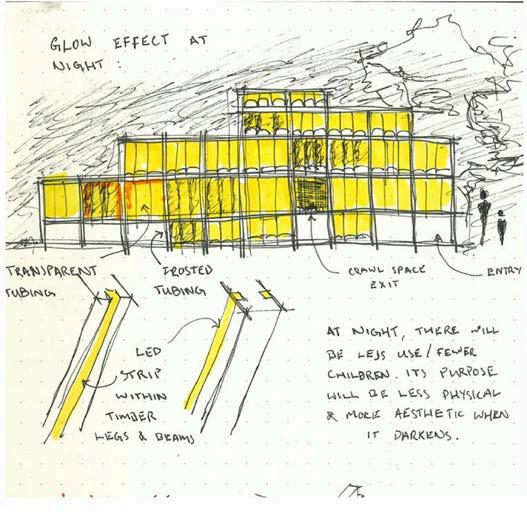 GLOW EFFECT AT
NIGHT :
TRANSPARENT
TUBING
FROSTED
TUBING
CRAWL SPACE
EXIT
ENTRY
LED
STRIP
WITHIN
TIMBER
LEGS & BEAMS
AT NIGHT, THERE WILL
BE LESS USE / FEWER
CHILDREN. ITS PURPOSE
WILL BE LESS PHYSICAL
& MORE AESTHETIC WHEN
IT DARKENS.